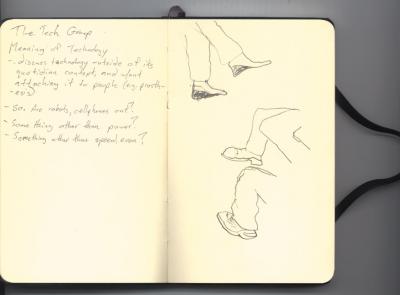 The Tech Group.
Meaning of Technology
- discuss technology outside of its
quotidian concept, and w/out
attaching it to people (e.g. prosth-
-esis)
- So: Are robots, cellphones out?
- Something other than power?
- Something other than speed, even?